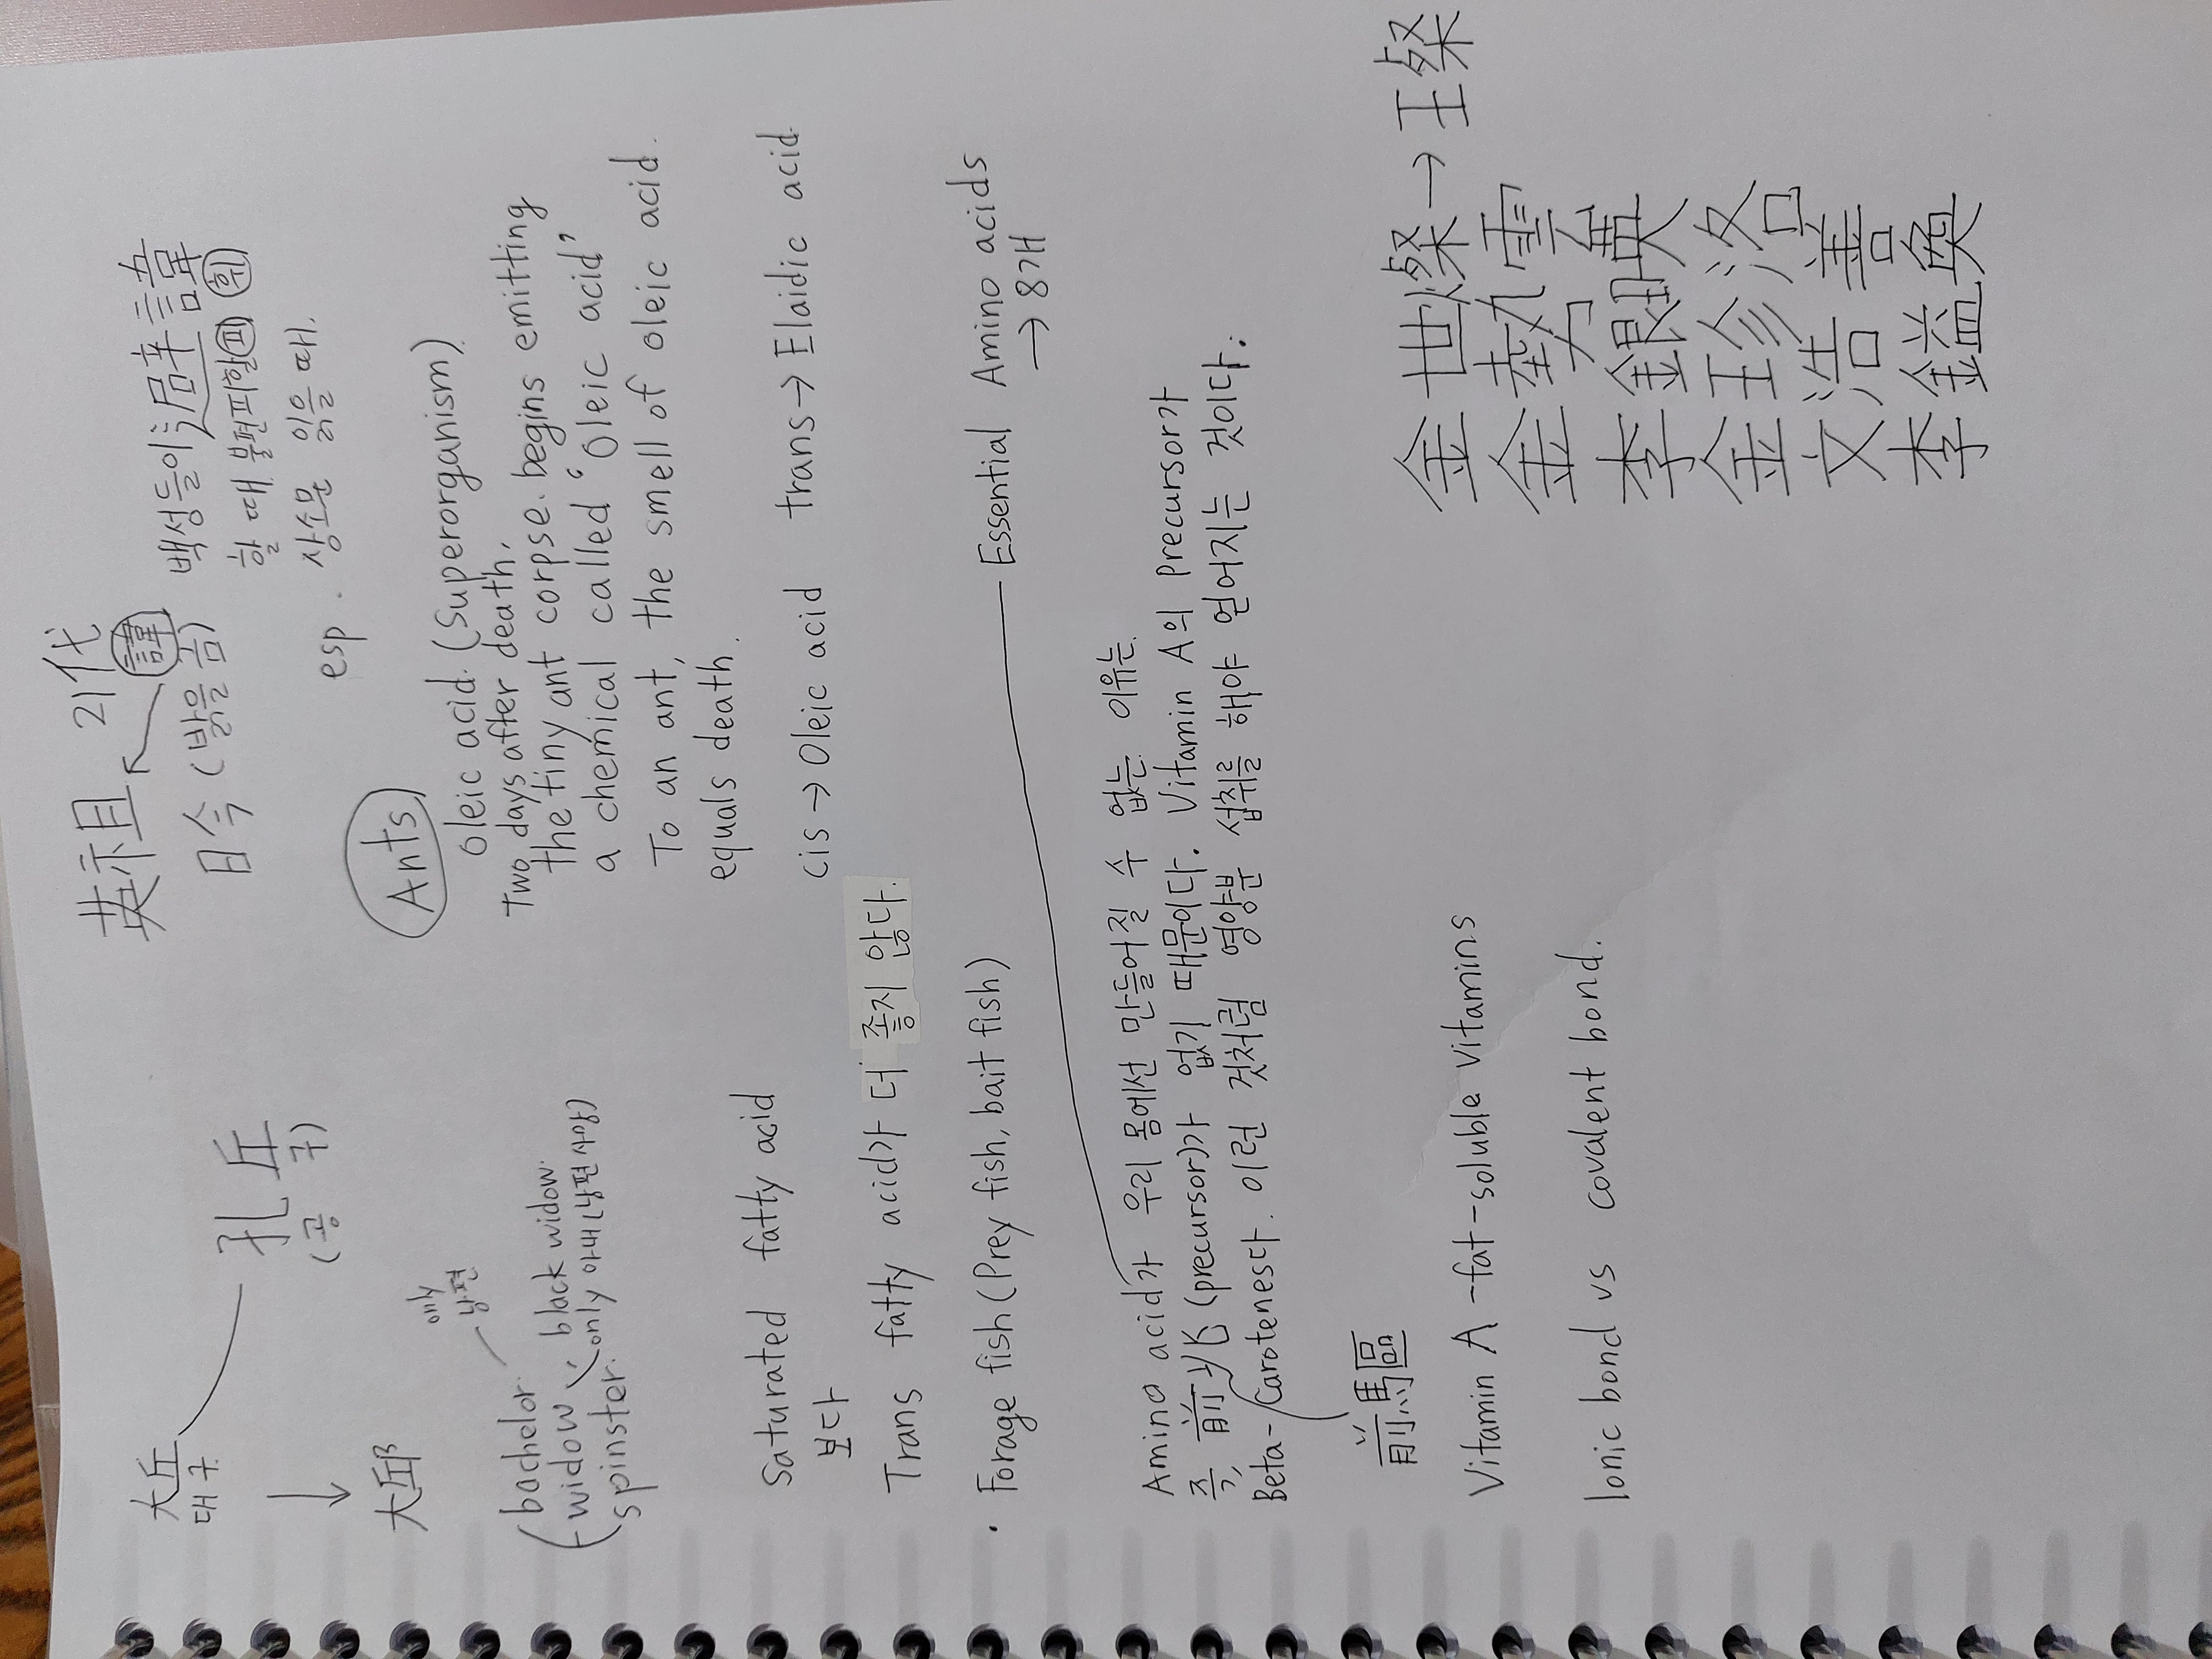 大丘
대구
孔丘
(공 구)
↓
大邱
英祖 21代
諱
日今 (밝을 금)
백성들이 避諱
할 때 불편 피할 피 휘
esp. 상소문 읽을 때.
only
남편
bachelor
widow, black widow.
only 아내 (남편 사망)
spinster.
Ants
oleic acid. (Superorganism)
Two days after death,
the tiny ant corpse. begins emitting
a chemical called "Oleic acid"
To an ant, the smell of oleic acid.
equals death.
Saturated fatty acid
보다
Trans fatty acid가 더 좋지 않다.
cis → Oleic acid trans → Elaidic acid
· Forage fish (Prey fish, bait fish)
Essential Amino acids
→ 8개
Amino acid가 우리 몸에선 만들어질 수 없는 이유는
즉, 前 (precursor)가 없기 때문이다. Vitamin A의 Precursor가
Beta-Carotene이다. 이런 것처럼 영양분 섭취를 해야 얻어지는 것이다.
前馬區
Vitamin A - fat-soluble vitamins
Ionic bond vs covalent bond.
金世燦 → 王粲
金 雲
李銀
金珍洛
文浩善
李鎰奐